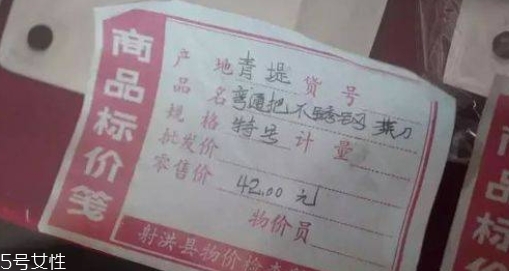 商品标价笺
产地 青堤 货号
品名 弯通把不锈钢菜刀
规格 特号 计量
批发价
零售价 42.00元
物价员
射洪县物价检查
品标
5号女性